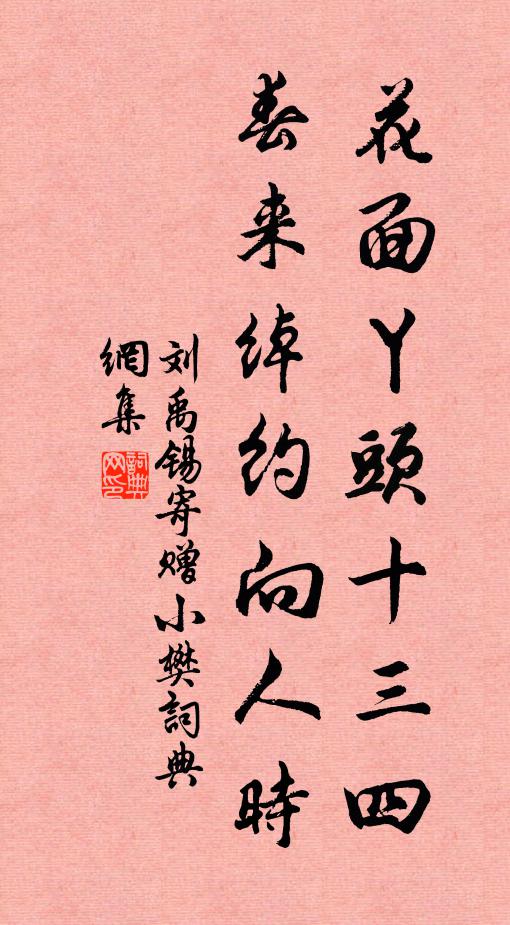 花面丫頭十三四
春来綽約向人時
刘禹锡寄赠小樊詞典
網集
詞典网印